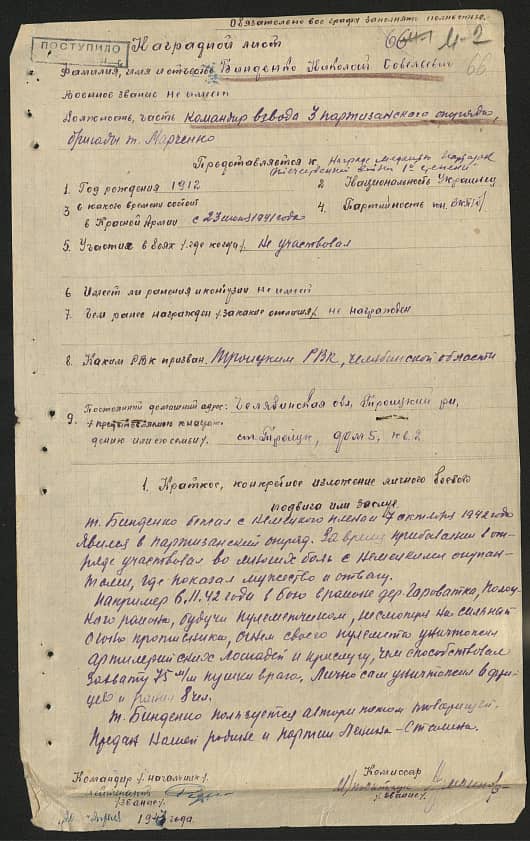 Обязательно все графы заполнять полностью.
ПОСТУПИЛО
Наградной лист
66
Фамилия, имя и отчество Бинденко Николай Савельевич
66
Военное звание не имеет
Должность, часть Командир взвода 3 партизанского отряда,
бригады т. Марченко
Представляется к награде медалью "Партизан
Отечественной войны" 1й степени
1. Год рождения 1912
2 Национальность Украинец
3 с какого времени состоит
в Красной Армии с 23 июня 1941 года
4. Партийность чл. ВКП(б)
5. Участие в боях /где когда/. Не участвовал
6 Имеет ли ранения и контузии не имеет
7. Чем ранее награжден /за какие отличия/. не награжден
8. Каким РВК призван. Троицким РВК, Челябинской области
9. Постоянный домашний адрес: Челябинская обл, Троицкий р-н,
/представляемого к награж-
дению или его семьи/. ст. Троицк, дом 5, кв. 2
1. Краткое, конкретное изложение личного боевого
подвига или заслуг
т. Бинденко бежал с немецкого плена 7 октября 1942 года
явился в партизанский отряд. За время пребывания в от-
ряде участвовал во многих боях с немецкими оккупан-
тами, где показал мужество и отвагу.
Например 6.11.42 года в бою в районе дер. Гароватка, Полоц-
кого района, будучи пулеметчиком, несмотря на сильный
огонь противника, огнем своего пулемета уничтожил
артилерийских лошадей и прислугу, чем способствовал
захвату 75 м/м пушки врага. Лично сам уничтожил
и ранил 8 чел.
т. Бинденко пользуется авторитетом товарищей.
Предан нашей родине и партии Ленина-Сталина.
Командир /начальник/.
Комиссар
/звание/.
/звание/.
1943 года.